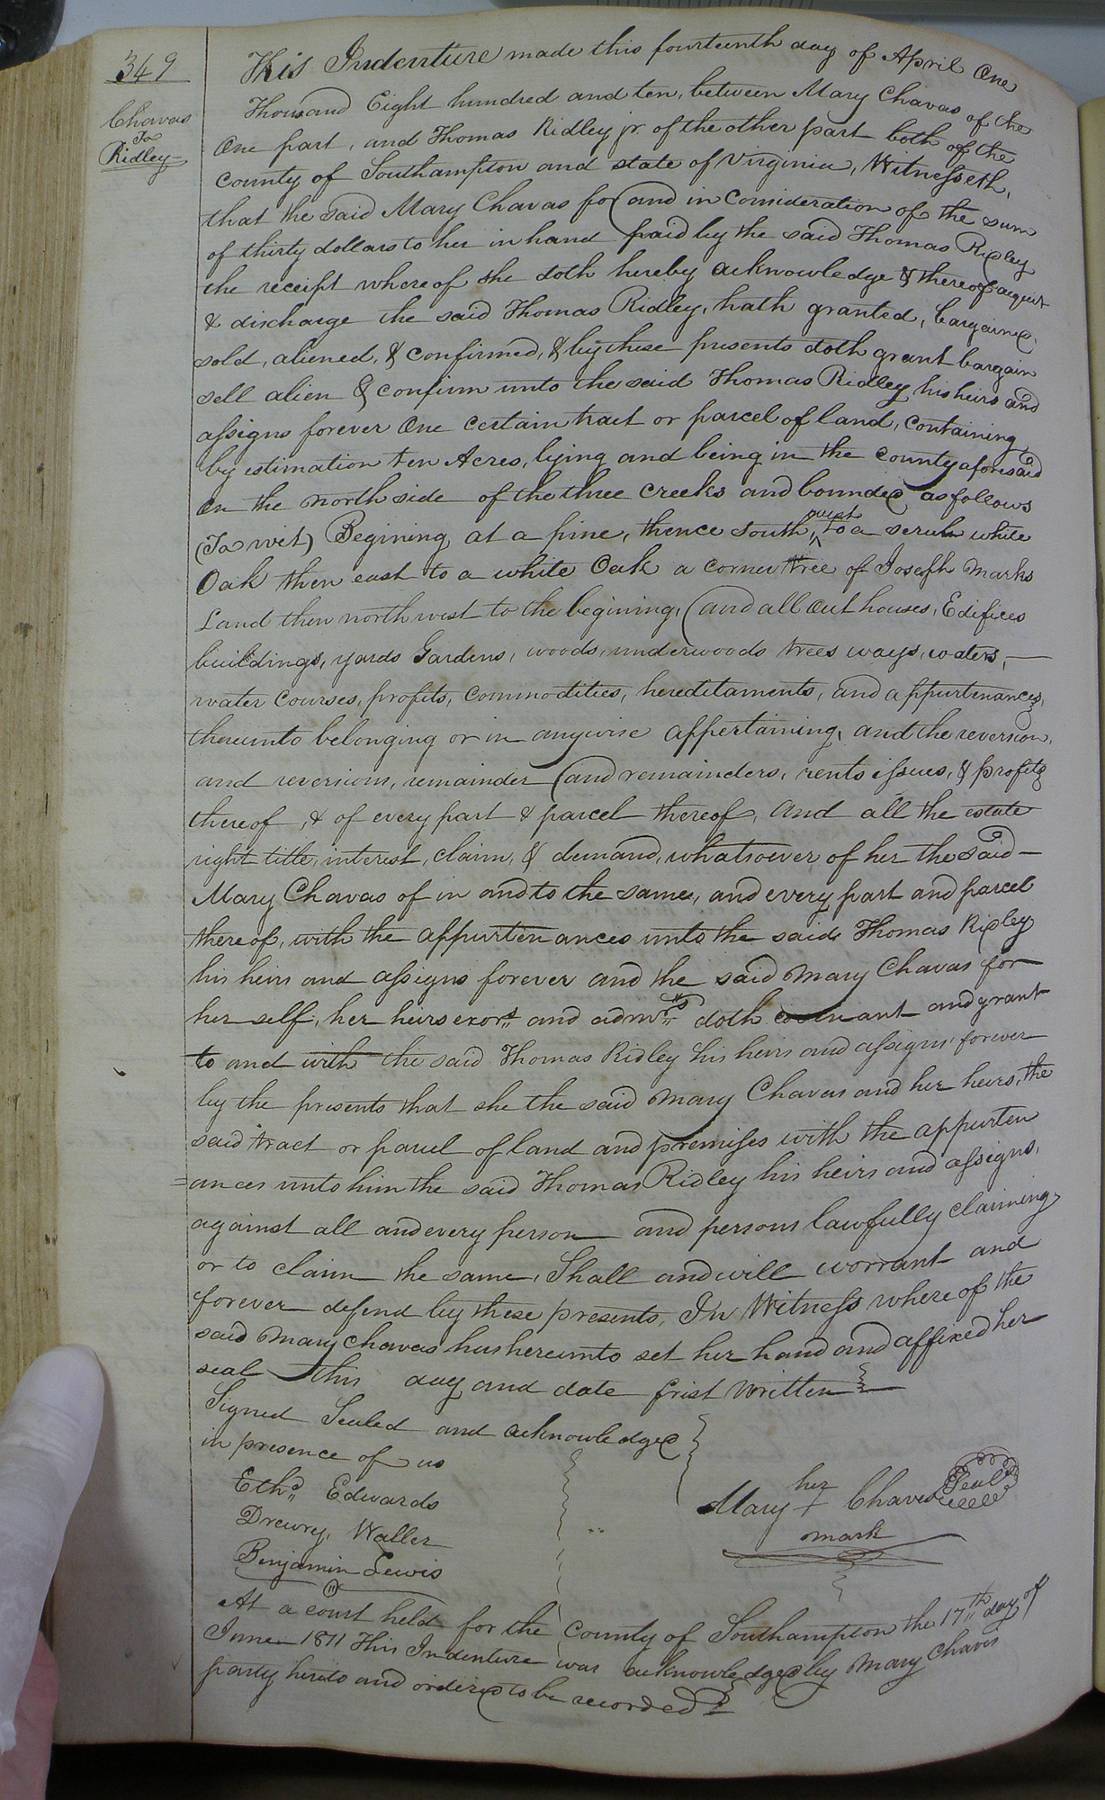 349
Chavas
To
Ridley
This Indenture made this fourteenth day of April One
Thousand Eight hundred and ten, between Mary Chavas of the
One part, and Thomas Ridley jr. of the other part both of the
County of Southampton and state of Virginia, Witnesseth,
that the said Mary Chavas for and in Consideration of the sum
of thirty dollars to her in hand paid by the said Thomas Ridley
the receipt whereof she doth hereby acknowledge & thereof acquit
& discharge the said Thomas Ridley, hath granted, bargained,
sold, aliened, & confirmed, & by these presents doth grant bargain
sell alien & confirm unto the said Thomas Ridley his heirs and
assigns forever One certain tract or parcel of land, Containing
by estimation ten Acres, lying and being in the County aforesaid
On the north side of the three Creeks and bounded as follows
(To wit) Begining at a pine, thence South west to a scrub white
Oak then east to a white Oak a corner tree of Joseph Marks
Land then north west to the begining, and all Out houses, Edifices
buildings, yards Gardens, woods, underwoods trees ways, waters,
water Courses, profits, Commodities, hereditaments, and appurtenances,
thereunto belonging or in anywise appertaining, and the reversion,
and reversions, remainder and remainders, rents issues, & profits
thereof, & of every part & parcel thereof, and all the estate
right title, interest, claim, & demand, whatsoever of her the said
Mary Chavas of in and to the same, and every part and parcel
thereof, with the appurtinances unto the said Thomas Ridley
his heirs and assigns forever and the said Mary Chavas for
her self, her heirs exors and admrs doth covenant and grant
to and with the said Thomas Ridley his heirs and assigns forever
by the presents that she the said Mary Chavas and her heirs, the
said tract or parcel of land and premises with the appurten
=ances unto him the said Thomas Ridley his heirs and assigns,
against all and every person and persons lawfully claiming
or to claim the same, Shall and will worrant and
forever defend by these presents, In Witness where of the
said Mary Chavas has hereunto set her hand and affixed her
seal this day and date frist Written
Signed Sealed and acknowledged
in presence of us
Ethd. Edwards
Drewry, Waller
Benjamin Lewis
her
Mary + Chaves Seal
mark
At a Court held for the County of Southampton the 17th day of
June 1811 This Indenture was acknowledged by Mary Chaves
party hereto and ordered to be recorded